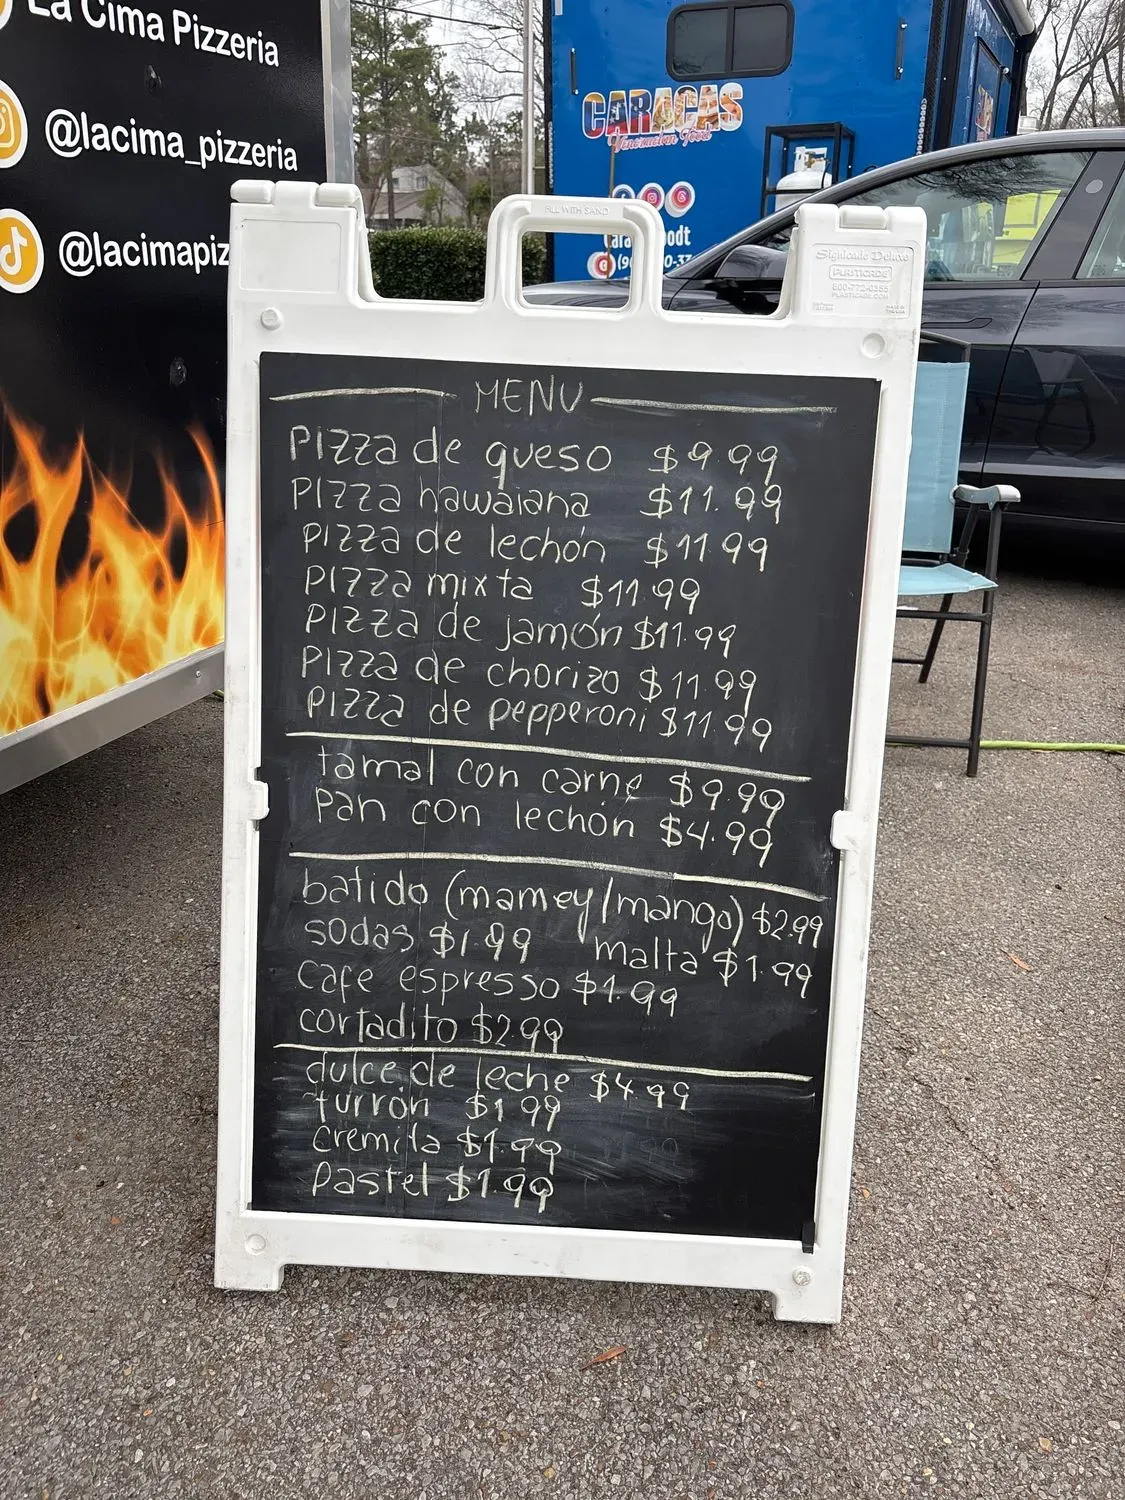 La Cima Pizzeria
@lacima_pizzeria
@lacimapiz
CARACAS
Venezuelan Food
FILL WITH SAND
Signicade Deluxe
PLASTICADE
800-772-0355
PLASTICADE.COM
MENU
PIZZA de queso $9.99
PIZZA hawaiana $11.99
PIZZA de lechón $11.99
PIZZA mixta $11.99
PIZZA de jamón $11.99
PIZZA de chorizo $11.99
PIZZA de pepperoni $11.99
tamal con carne $9.99
Pan con lechón $4.99
batido (mamey/mango) $2.99
sodas $1.99 malta $1.99
Cafe espresso $1.99
cortadito $2.99
dulce de leche $4.99
turrón $1.99
cremita $1.99
Pastel $1.99